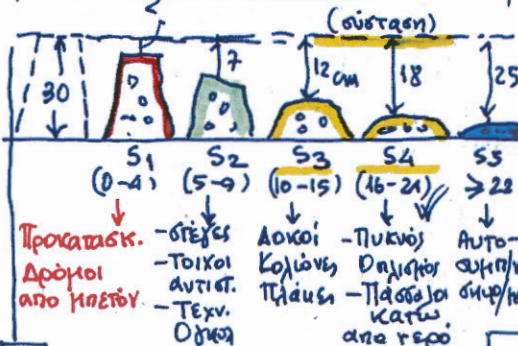 (σύσταση)
2
30
7
12 cm
18
25
S1 S2 S3 S4 S5
(0-4) (5-9) (10-15) (16-21) ≥22
Προκατασκ.
Δρόμοι
απο μπετόν
-στέγες
-Τοιχοι
αντιστ.
-Τεχν.
Ογκολ
Δοκοί
Κολώνες
Πλάκες
-Πυκνός
Οπλισμός
-Πάσσαλοι
κατω
απο νερό
Αυτο-
συμπ/